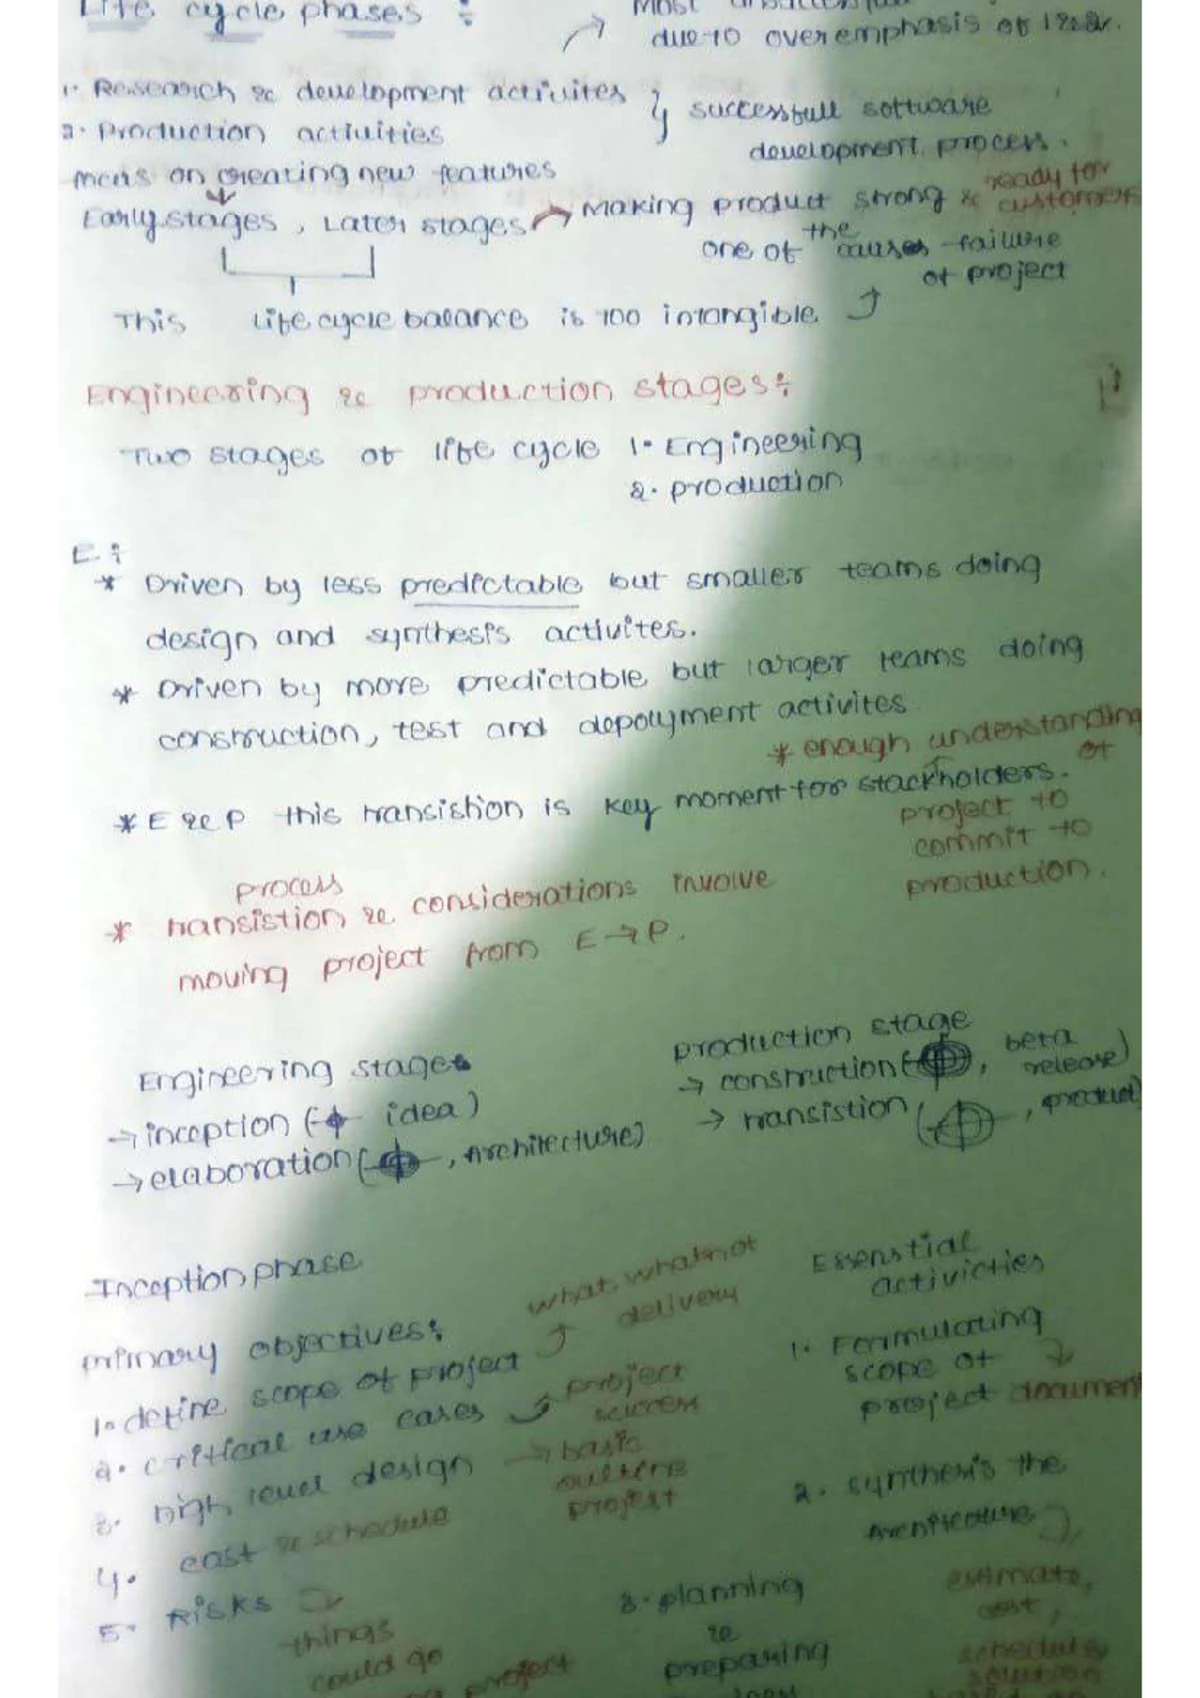 Life cycle phases :
Most
due to overemphasis of 1 & 2.
1. Research & development activites
2. Production activities
} successfull software
development process.
means on creating new features
Early stages , Later stages → Making product strong & ready for customers
one of the causes failure
of project
This Life cycle balance is too intangible
Engineering & production stages :
Two stages of life cycle 1. Engineering
2. production
E :
* Driven by less predictable but smaller teams doing
design and synthesis activites.
* Driven by more predictable but larger teams doing
construction, test and depolyment activites
* E & P this transistion is key moment for stackholders.
* enough understanding
of
project to
commit to
production.
process
* transistion & considerations involve
moving project from E → P.
Engineering stages
→ inception ( idea )
→ elaboration ( , Architecture)
production stage
→ construction ( , beta
release)
→ transistion ( , product)
Inception phase
primary objectives :
1. define scope of project
what, what not
delivery
2. critical use cases
project
success
3. high level design → basic
project
4. cost & schedule
5. Risks
things
could go
project
Essenstial
activicties
1. Formulating
scope of
project document
2. synthesis the
Architecture
3. planning
&
preparing
estimate,
cost,
schedule,
solution